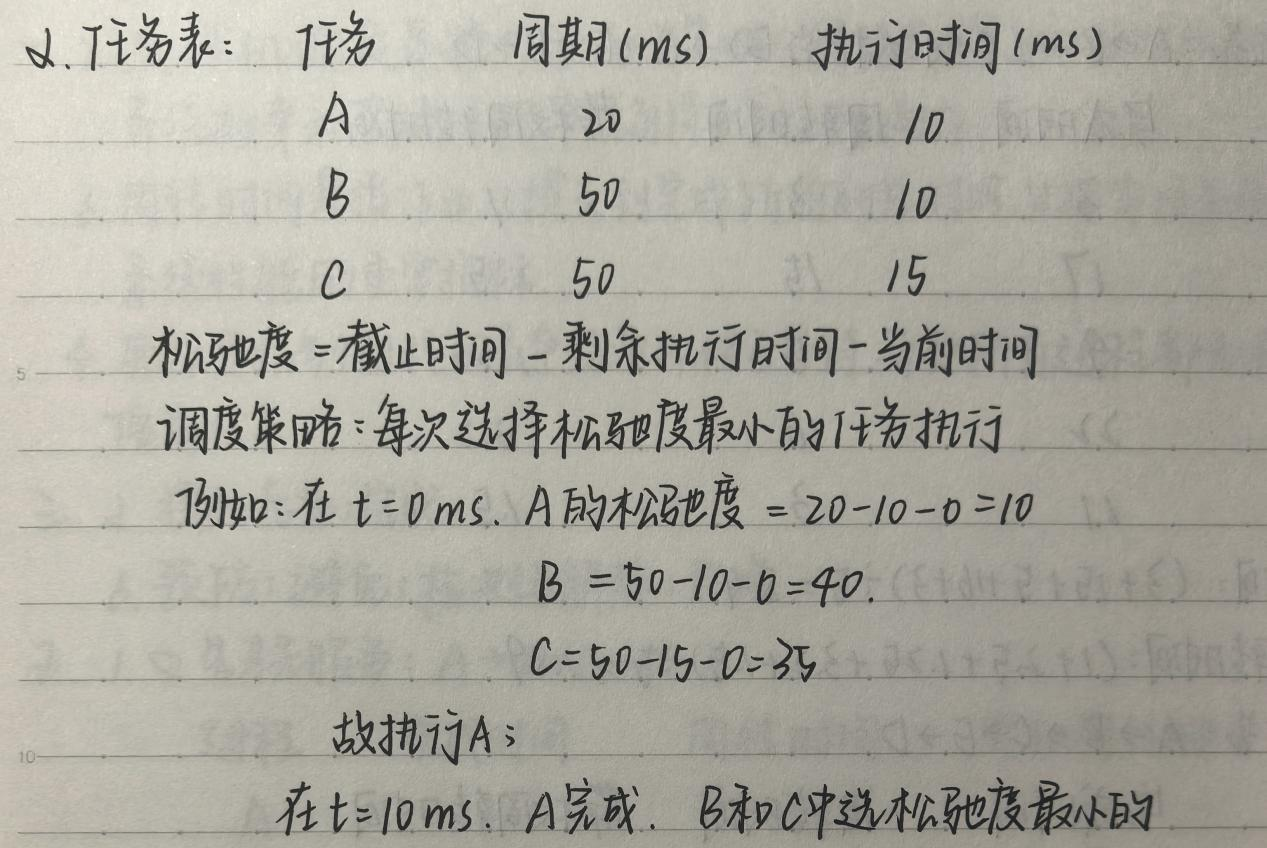 2. 任务表: 任务 周期(ms) 执行时间(ms)
A 20 10
B 50 10
C 50 15
松弛度 = 截止时间 - 剩余执行时间 - 当前时间
5
调度策略: 每次选择松弛度最小的任务执行
例如: 在 t=0ms. A的松弛度 = 20-10-0=10
B = 50-10-0=40.
C=50-15-0=35
故执行A;
10
在t=10ms. A完成. B和C中选松弛度最小的